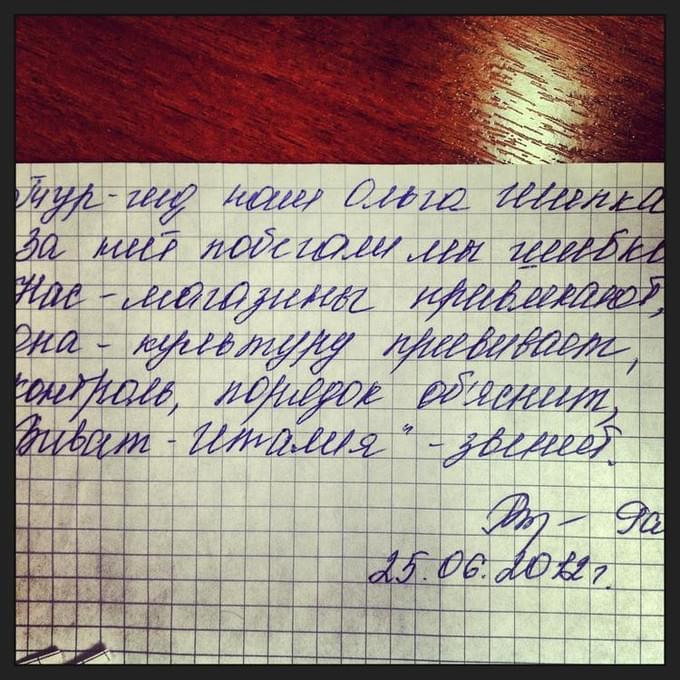 Тур-гид наш Ольга Шепка
За ней побегали мы шибко
Нас - магазины привлекают,
она - культуру прививает,
контроль, порядок объяснит,
Виват - Италия" - звенит.
25.06.2012 г.